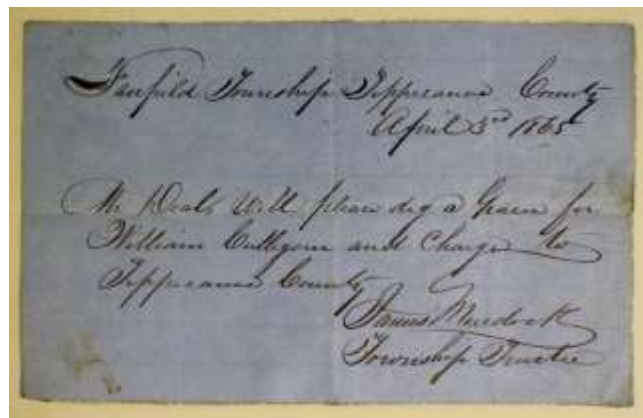 Fairfield Township Tippecanoe County
April 3rd 1865
Mr Deals Will please dig a Grave for
William Culligan and Charge to
Tippecanoe County
James Murdock
Township Trustee